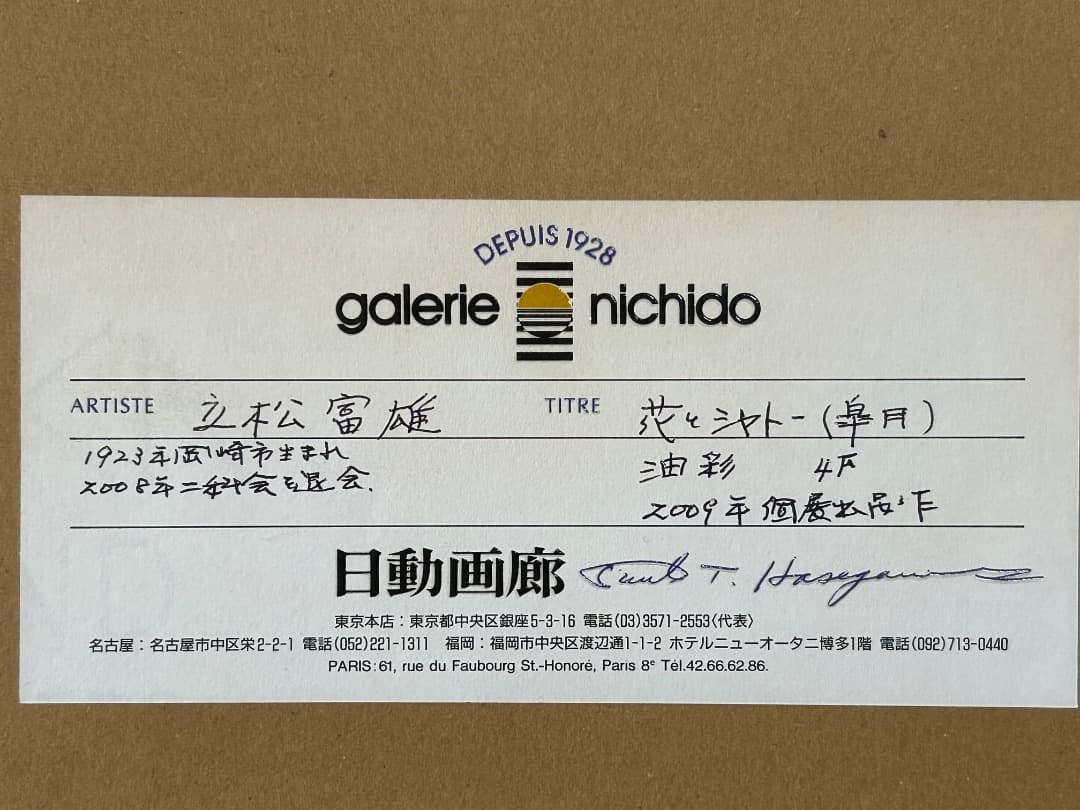 DEPUIS 1928
galerie nichido
ARTISTE 立松富雄 TITRE 花とシャトー(皐月)
1923年岡崎市生まれ
2008年二科会を退会.
油彩 4F
2009年個展出品作
日動画廊 T. Hasegawa
東京本店:東京都中央区銀座5-3-16 電話(03)3571-2553〈代表〉
名古屋:名古屋市中区栄2-2-1 電話(052)221-1311 福岡:福岡市中央区渡辺通1-1-2 ホテルニューオータニ博多1階 電話(092)713-0440
PARIS:61, rue du Faubourg St.-Honoré, Paris 8e Tél.42.66.62.86.